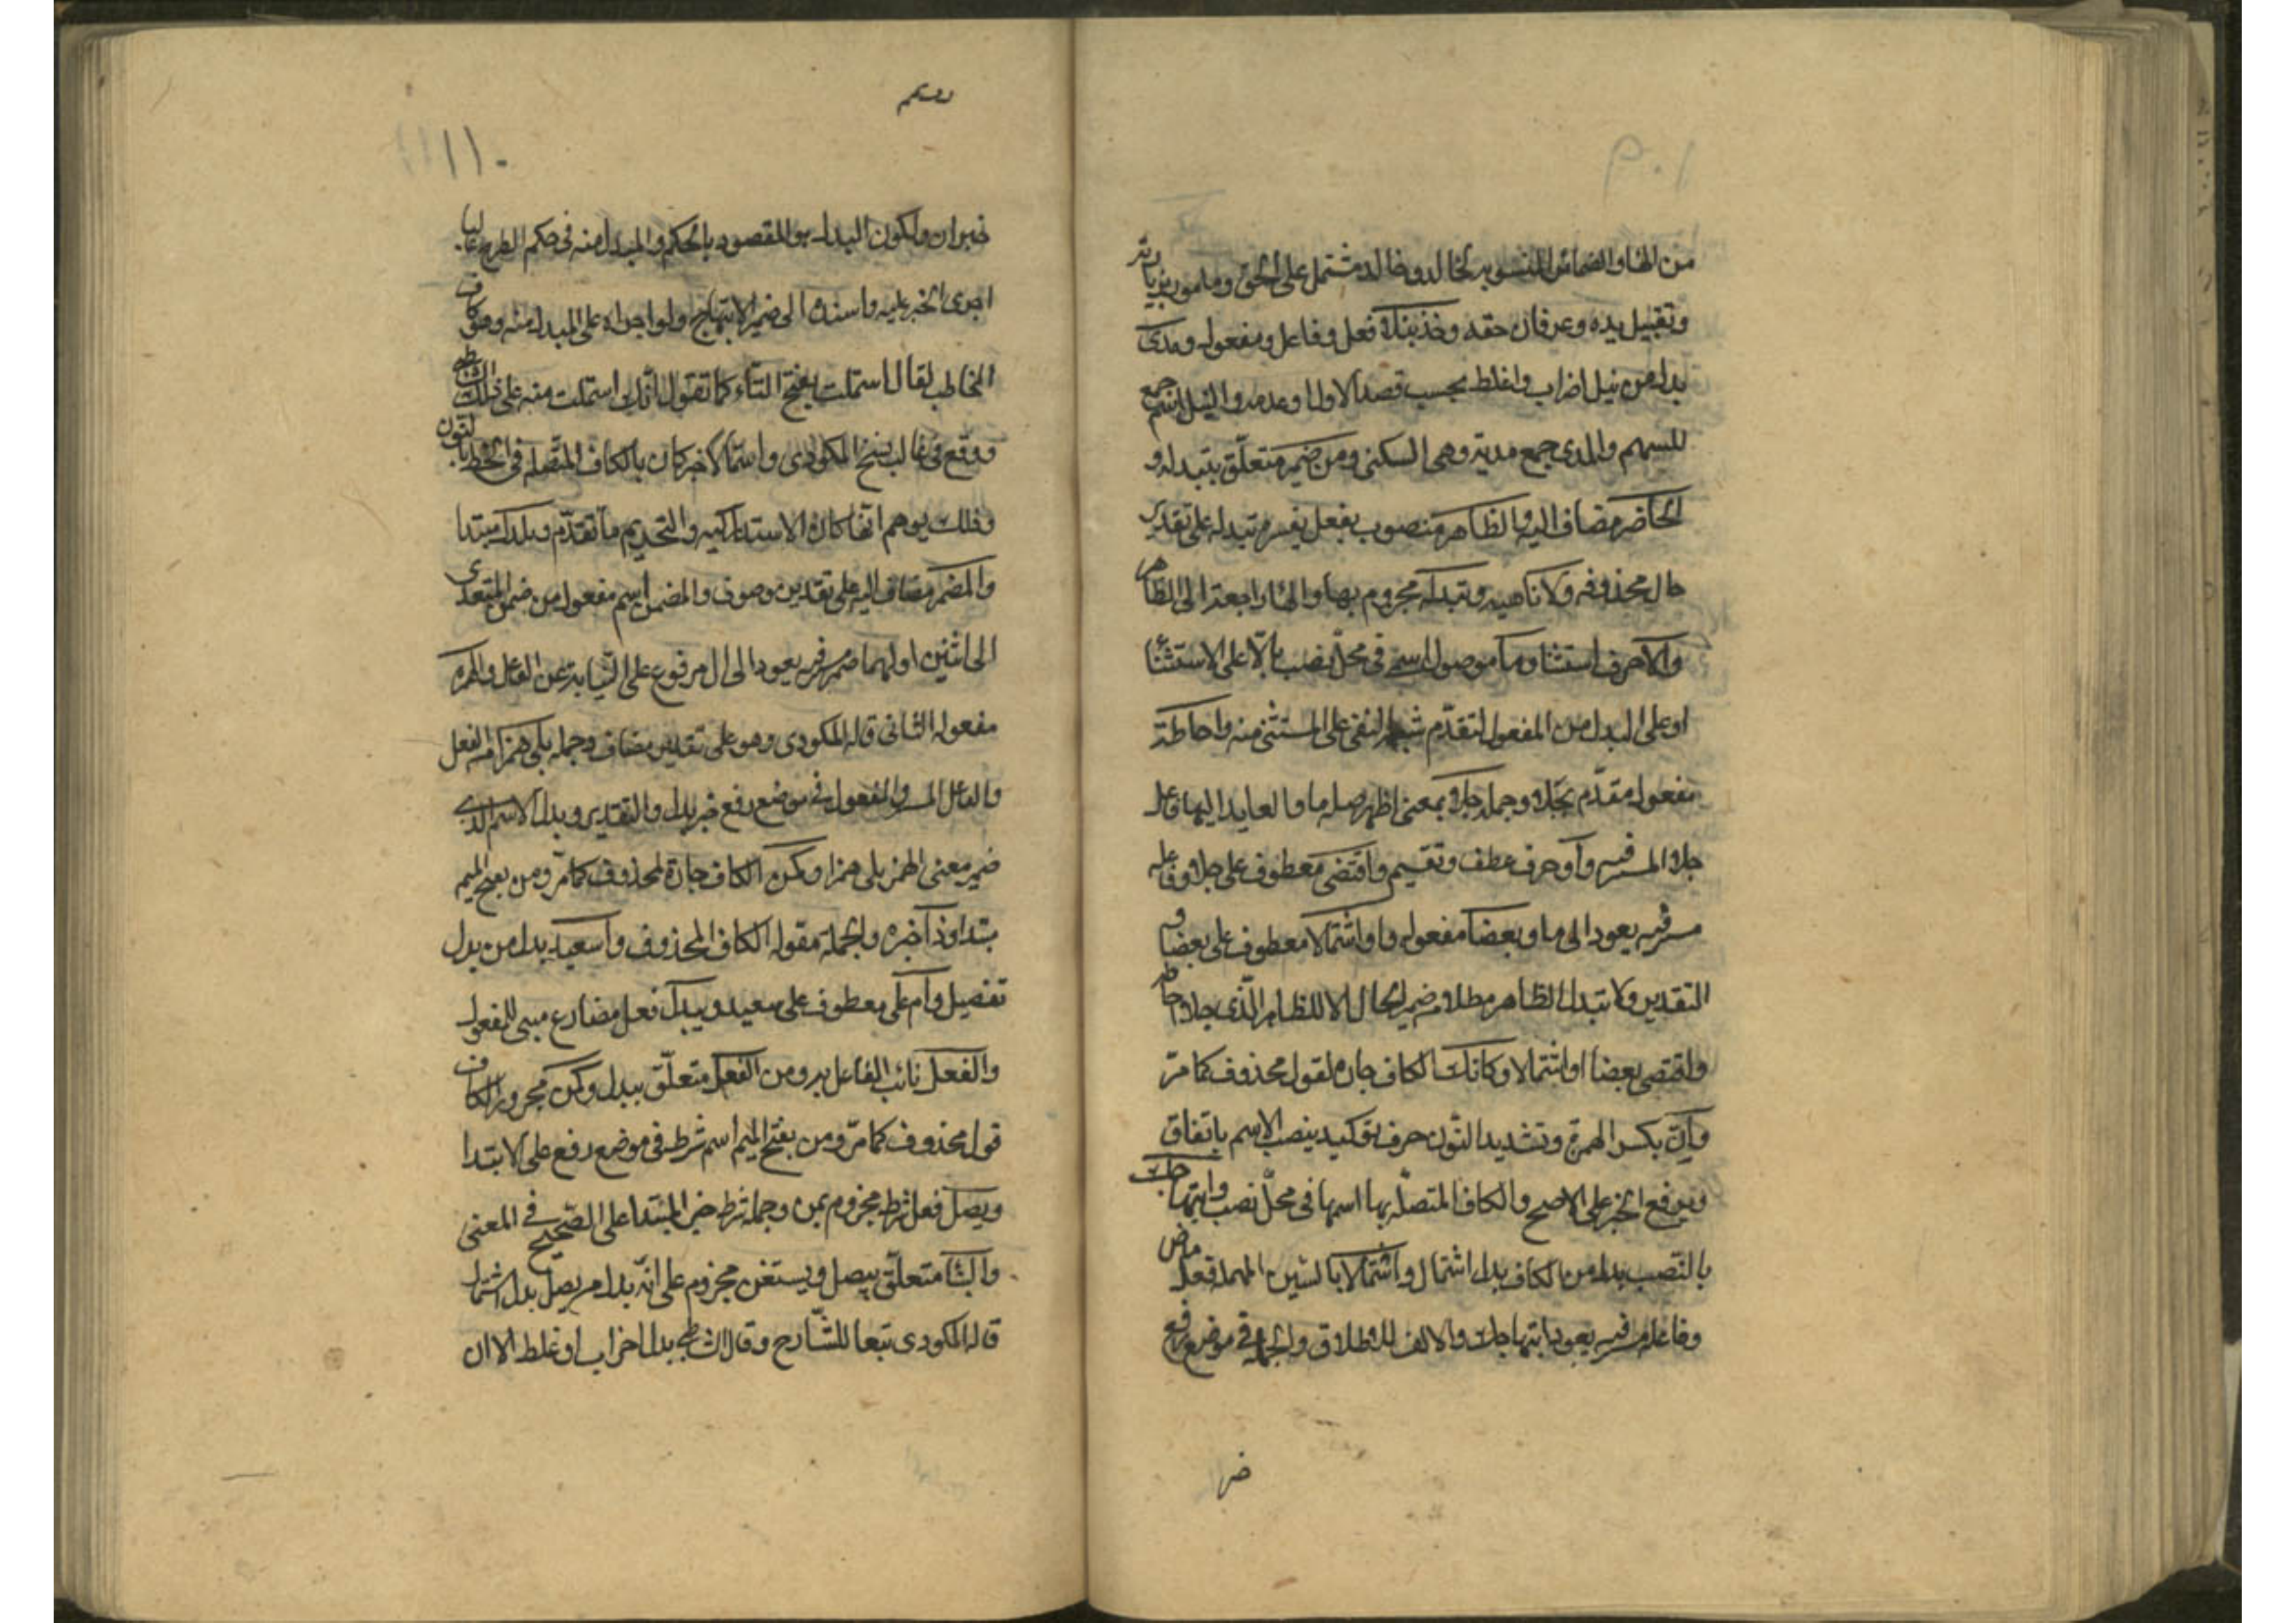 من الهاء والضمائر المنسوبه لخالد وخالد مشتمل على الحق ومامور بزيارته
وتقبيل يده وعرفان حقه وخذ نبلا فعل وفاعل ومفعول ومدى
بدل من نبل اضراب او غلط بحسب قصد الاول وعدمه والنبل اسم جمع
للسهم والمدى جمع مدية وهى السكين ومن ضمير متعلق بتبدله و
الحاضر مضاف اليه والظاهر منصوب بفعل يفسره تبدله على تقدير
حال محذوفه ولا ناهيه وتبدله مجزوم بها والهاء راجعة الى الظاهر
والا حرف استثنا وما موصول اسمى فى محل نصب بالا على الاستثنا
او على البدل من المفعول لتقدم شبه النفى على المستثنى منه واحاطة
مفعول مقدم بجلا وجملة جلا بمعنى اظهر صلة ما والعايد اليها فاعل
جلا المستتر فيه وأو حرف عطف وتقسيم واقتضى معطوف على جلا وفاعله
مستتر فيه يعود الى ما وبعضا مفعوله واو اشتمالا معطوف على بعضا و
التقدير ولا تبدل الظاهر مطلقا من ضمير الحال الا للظاهر الذى جلا احاطة
واقتضى بعضا او اشتمالا وكانك الكاف جارة لقول محذوف كما مر
وان بكسر الهمزة وتشديد النون حرف توكيد ينصب الاسم باتفاق
ويرفع الخبر على الاصح والكاف المتصلة بها اسمها فى محل نصب وابتهاجك
بالنصب بدل من الكاف بدل اشتمال واستمالا بالسين المهملة فعل ماض
وفاعله مستتر فيه يعود لابتهاجك والالف للاطلاق والجملة فى موضع رفع
خبر ان ولكون البدل هو المقصود بالحكم والمبدل منه فى حكم الطرح غالبا
اجرى الخبر عليه واسنده الى ضمير الابتهاج ولو اجراه على المبدل منه وهو كاف
المخاطب لقال استملت بفتح التاء كما تقول انك استملت منه على ذلك الشاطبى
ووقع فى غالب نسخ المكودى واستمالا خبر كان بالكاف المتصلة فى الخط بالنون
وذلك يوهم انها كان الاستدراكيه والتحريم ما تقدم وبدل مبتدا
والمضمن مضاف اليه على تقدير موصوف والمضمن اسم مفعول من ضمن المتعدى
الى اثنين اولهما ضمير مستتر فيه يعود الى ال مرفوع على النيابة عن الفاعل والهمزه
مفعوله الثانى قاله المكودى وهو على تقدير مضاف وجملة يلى همزا من الفعل
والفاعل المستتر والمفعول فى موضع رفع خبر بدل والتقدير وبدل الاسم الذى
ضمن معنى الهمز يلى همزا وكمن الكاف جارة لمحذوف كما مر ومن بفتح الميم
مبتدا وذا خبره والجملة مقولة الكاف المحذوف وأسعيد بدل من بدل
تفصيل وأم على معطوف على سعيد ويبدل فعل مضارع مبنى للمفعول
والفعل نائب الفاعل به ومن الفعل متعلق بيبدل وكمن مجرور الكاف
قول محذوف كما مر ومن بفتح الميم اسم شرط فى موضع رفع على الابتدا
ويصل فعل شرط مجزوم بمن وجملة شرط خبر المبتدا على الصحيح فى المعنى
والينا متعلق بيصل ويستعن مجزوم على انه بدل من يصل بدل اشتمال
قاله المكودى تبعا للشارح وقال الشاطبى بدل اضراب او غلط الا ان